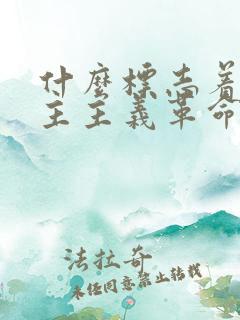 什麼標志着
主主義革命
法拉奇
未经同意禁止转载